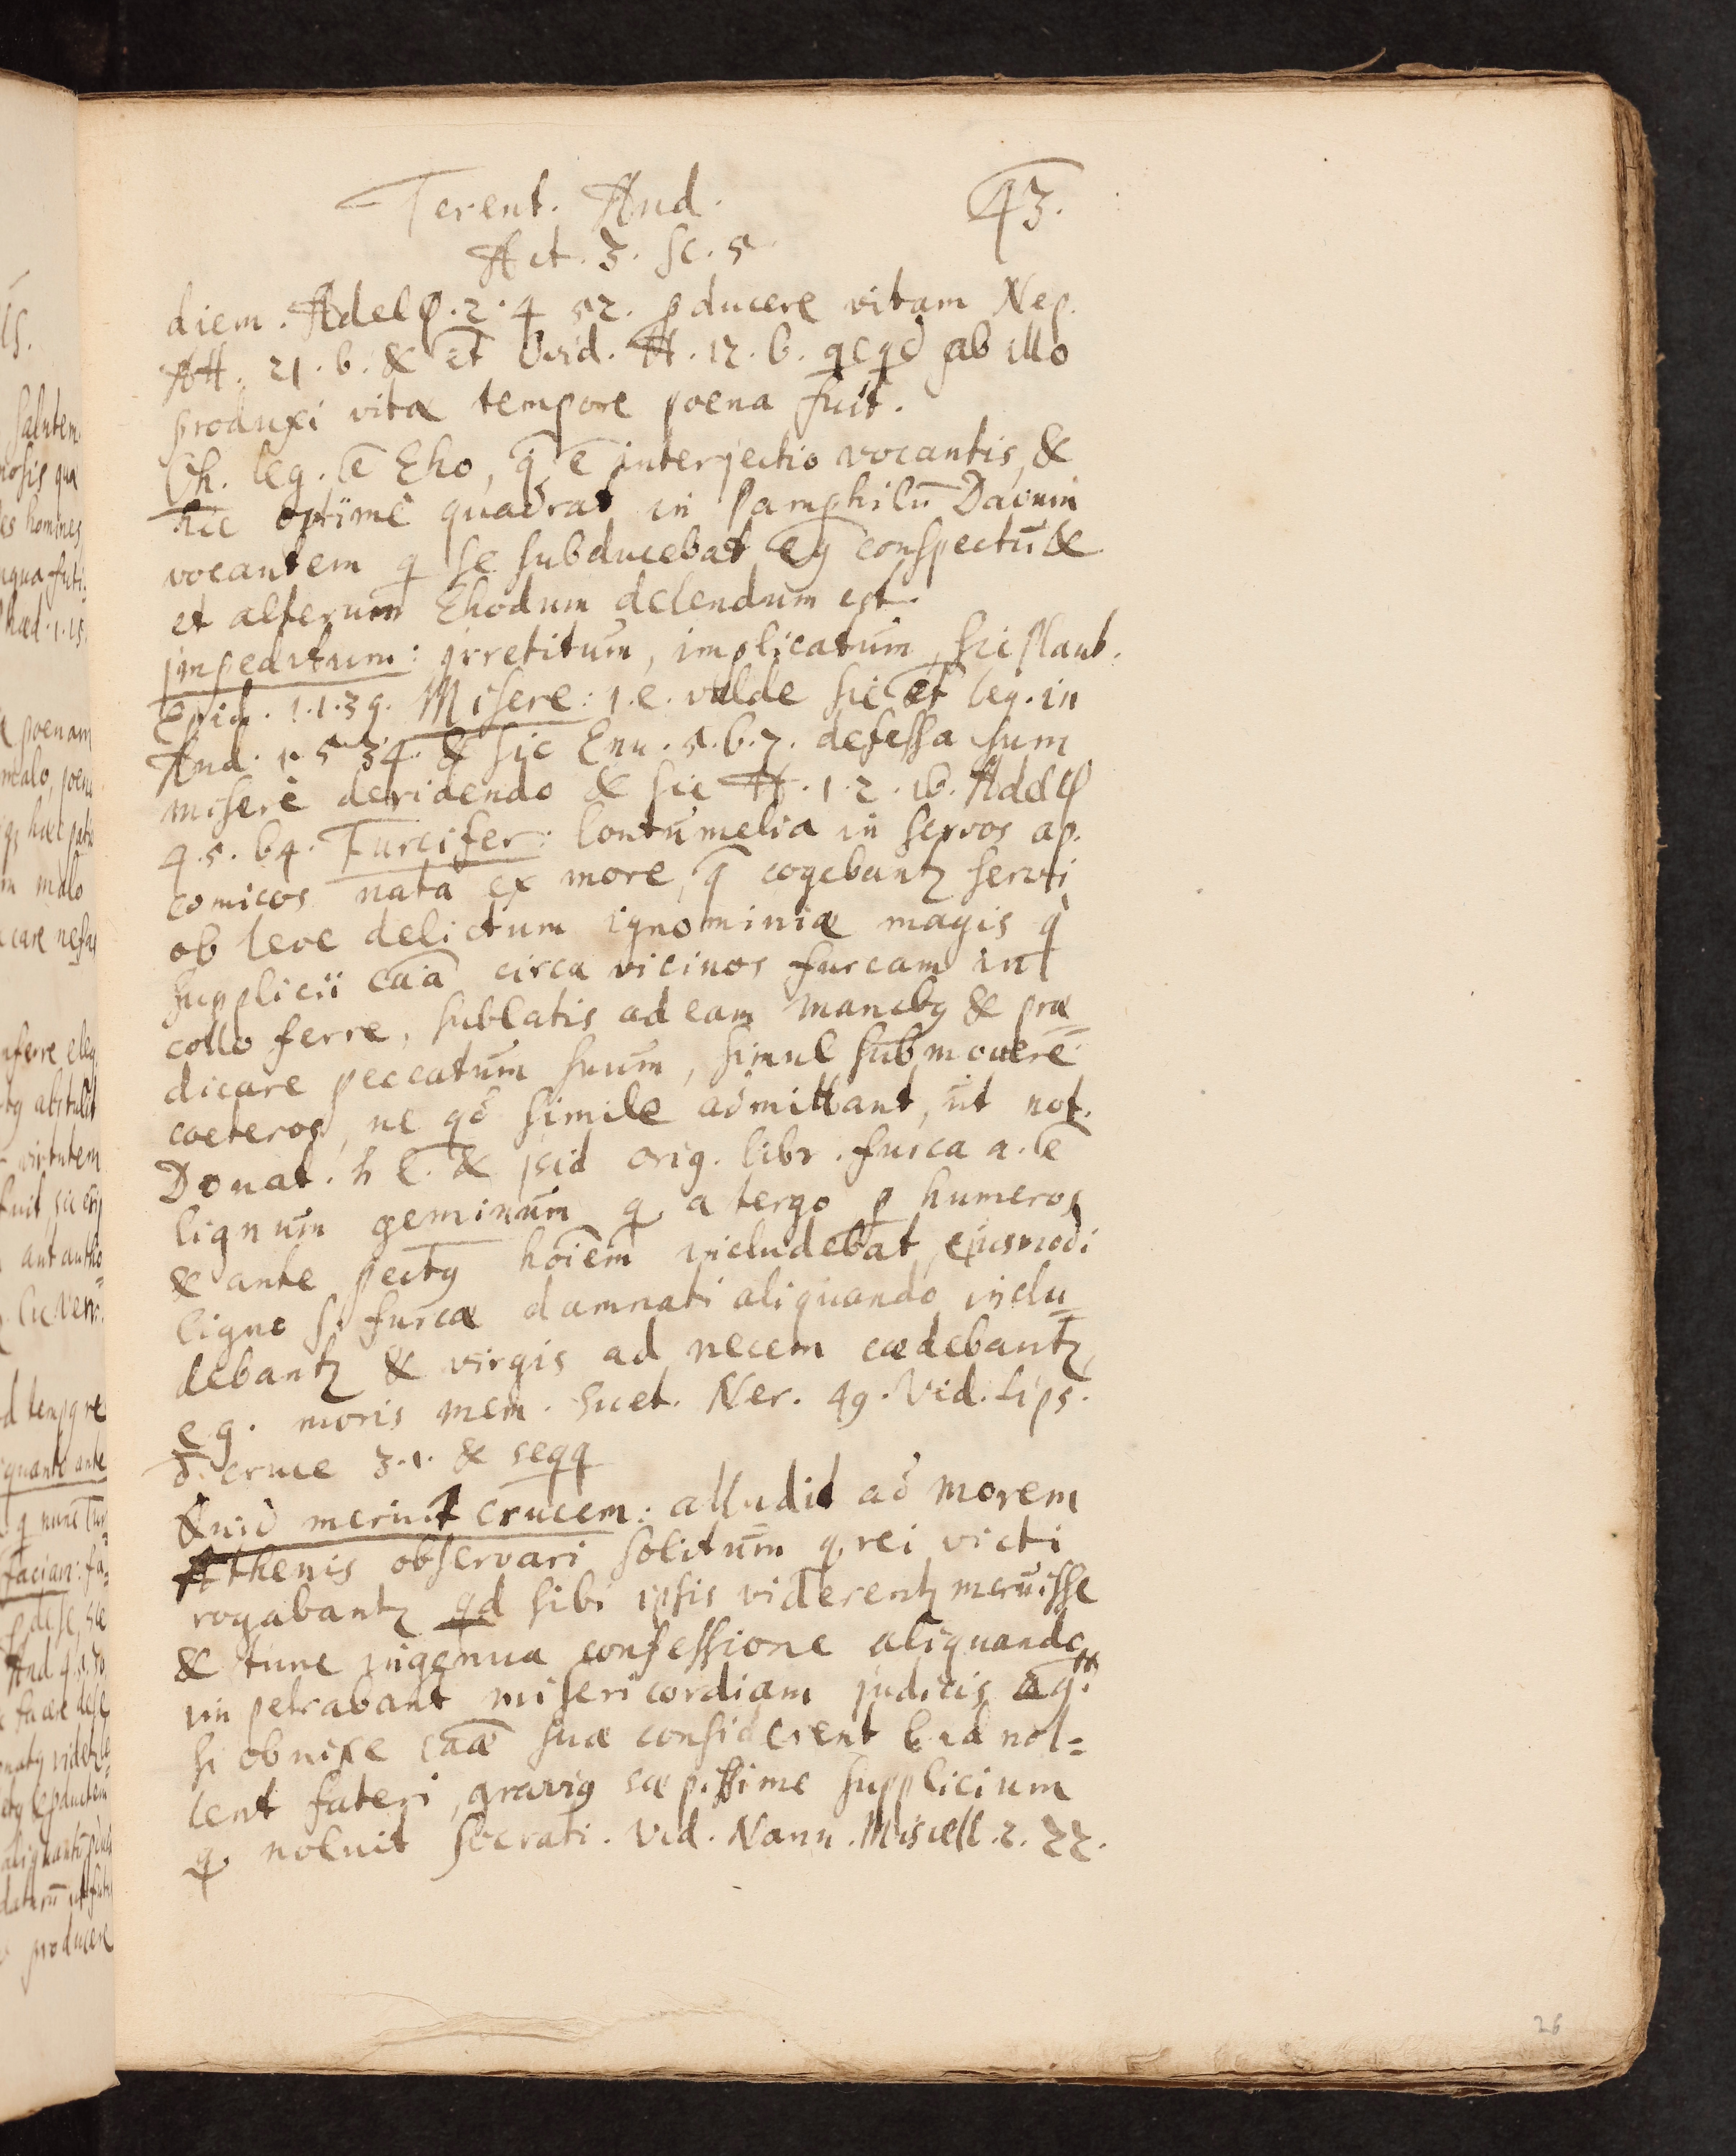 Terent. And. 43.
Act. 3. Sc. 5
diem. Adelφ. 2. 4 52. pducere vitam Nep.
Att. 21. 6. & et Ovid. H. 12. 6. qcqd ab illo
produxi vitæ tempore poena fuit.
Oh. leg. ē Eho, q̄ ē interjectio vocantis, &
hic optime quadrat in Pamphilū Davum
vocantem q se subducebat ej conspectū &
et alterum Ehodum delendum est.
impeditum: irretitum, implicatum, sic Plaut.
Epid. 1.1.39. Misere: i.e. valde sic et leg. in
And. 1. 5 34. & sic Enu. 5.6.7. defessa sum
misere deridendo & sic H. 1. 2. 16. Adelφ
4.5.64. Furcifer: Contumelia in servos ap.
comicos nata ex more, q̄ cogebantꝫ servi
ob leve delictum ignominiæ magis q̄
supplicii caā circa vicinos furcam in
collo ferre, sublatis ad eam manibꝫ & præ=
dicare peccatum suum, simul submovere
coeteros, ne qd simile admittant, ut not.
Donat. h l. & isid orig. libr. furca a. ē
lignum geminum q a tergo p humeros
& ante pectꝫ hoīem includebat, ejusmodi
ligno s. furcæ damnati aliquando inclu=
debantꝫ & virgis ad necem cædebantꝫ,
e.g. moris mem. Suet. Ner. 49. Vid. Lips.
d. cruce 3.1. & seqq
Quid meruit crucem: alludit ad morem
Athenis observari solitum q rei victi
rogabantꝫ qd sibi ipsis viderentꝫ meruisse
& tunc ingenua confessione aliquando
impetrabant misericordiam judicis aꝗ.
si obnixe caæ suæ considerent & id nol=
lent fateri, gravig sæpissime supplicium
q noluit Socrati. Vid. Nann. Miscell. 2. 22.
26